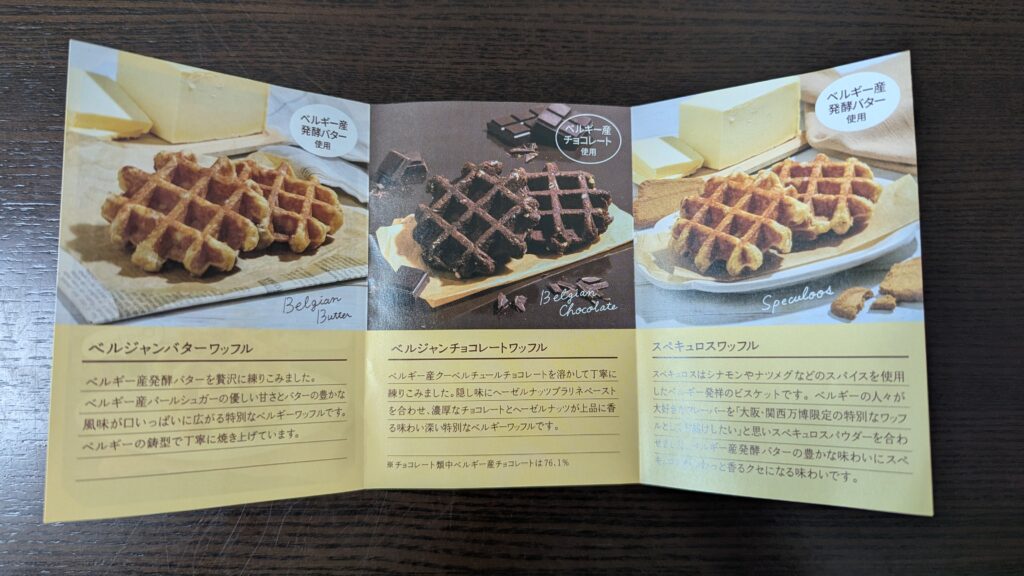 ベルギー産
発酵バター
使用
Belgian
Butter
ベルジャンバターワッフル
ベルギー産発酵バターを贅沢に練りこみました。
ベルギー産パールシュガーの優しい甘さとバターの豊かな
風味が口いっぱいに広がる特別なベルギーワッフルです。
ベルギーの鋳型で丁寧に焼き上げています。
ベルギー産
チョコレート
使用
Belgian
Chocolate
ベルジャンチョコレートワッフル
ベルギー産クーベルチュールチョコレートを溶かして丁寧に
練りこみました。隠し味にヘーゼルナッツプラリネペースト
を合わせ、濃厚なチョコレートとヘーゼルナッツが上品に香
る味わい深い特別なベルギーワッフルです。
※チョコレート類中ベルギー産チョコレートは76.1%
ベルギー産
発酵バター
使用
Speculoos
スペキュロスワッフル
スペキュロスはシナモンやナツメグなどのスパイスを使用
したベルギー発祥のビスケットです。ベルギーの人々が
大好きなフレーバーを「大阪・関西万博限定の特別なワッフ
ルとしてお届けしたい」と思いスペキュロスパウダーを合わ
せました。ベルギー産発酵バターの豊かな味わいにスペ
と香るクセになる味わいです。